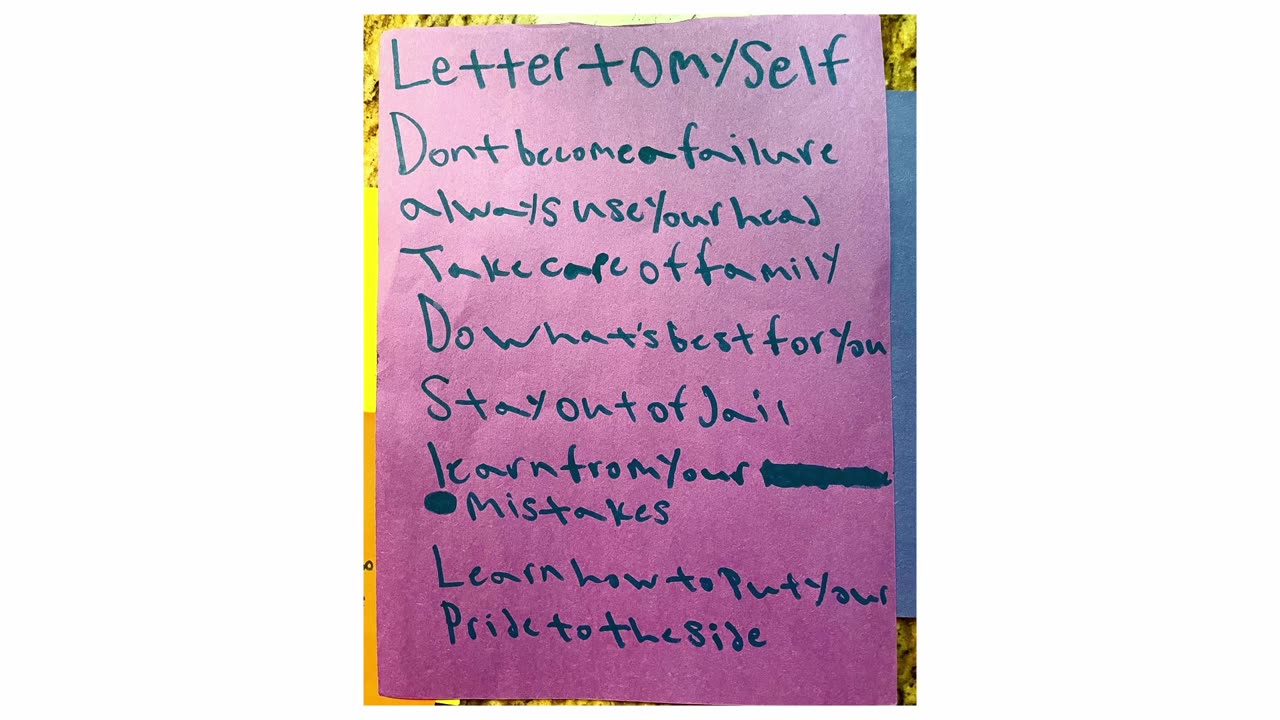 Letter to myself
Dont become a failure
always use your head
Take care of family
Do what's best for you
Stay out of Jail
learn from your
Mistakes
Learn how to Put your
Pride to the side